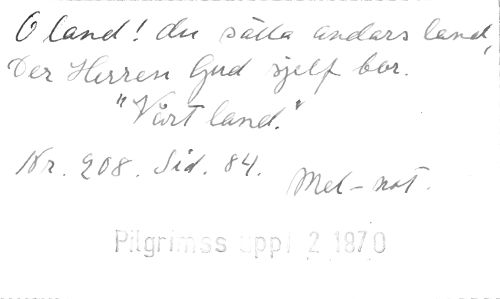 O land! du sälla andars land,
Der Herren Gud sjelf bor.
"Vårt land."
Nr. 208. Sid. 84.
Mel-not.
Pilgrimss uppl 2 1870